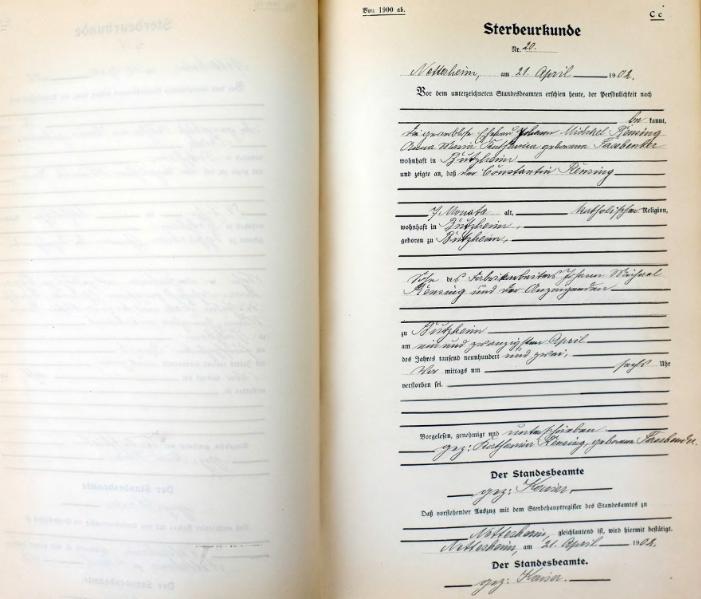 Von 1900 ab.
C c
Sterbeurkunde
Nr. 20.
Nettersheim, am 21. April 1902.
Vor dem unterzeichneten Standesbeamten erschien heute, der Persönlichkeit nach
be kannt,
die gewerblose Ehefrau Johann Michael Rensing
Anna Maria Katharina geborene Fassbender
wohnhaft in Bützheim
und zeigte an, daß der Constantin Rensing
7 Monate alt, katholischer Religion,
wohnhaft in Bützheim,
geboren zu Bützheim,
Sohn des Fabrikarbeiters Johann Michael
Rensing und der Anzeigenden
zu Bützheim
am ein und zwanzigsten April
des Jahres tausend neunhundert und zwei,
Vor mittags um sechs Uhr
verstorben sei.
Vorgelesen, genehmigt und unterschrieben
gez: Katharina Rensing, geborene Fassbender.
Der Standesbeamte
gez: Kaiser.
Daß vorstehender Auszug mit dem Sterbehauptregister des Standesamtes zu
Nettersheim, gleichlautend ist, wird hiermit bestätigt.
Nettersheim, am 21. April 1902.
Der Standesbeamte.
gez: Kaiser.